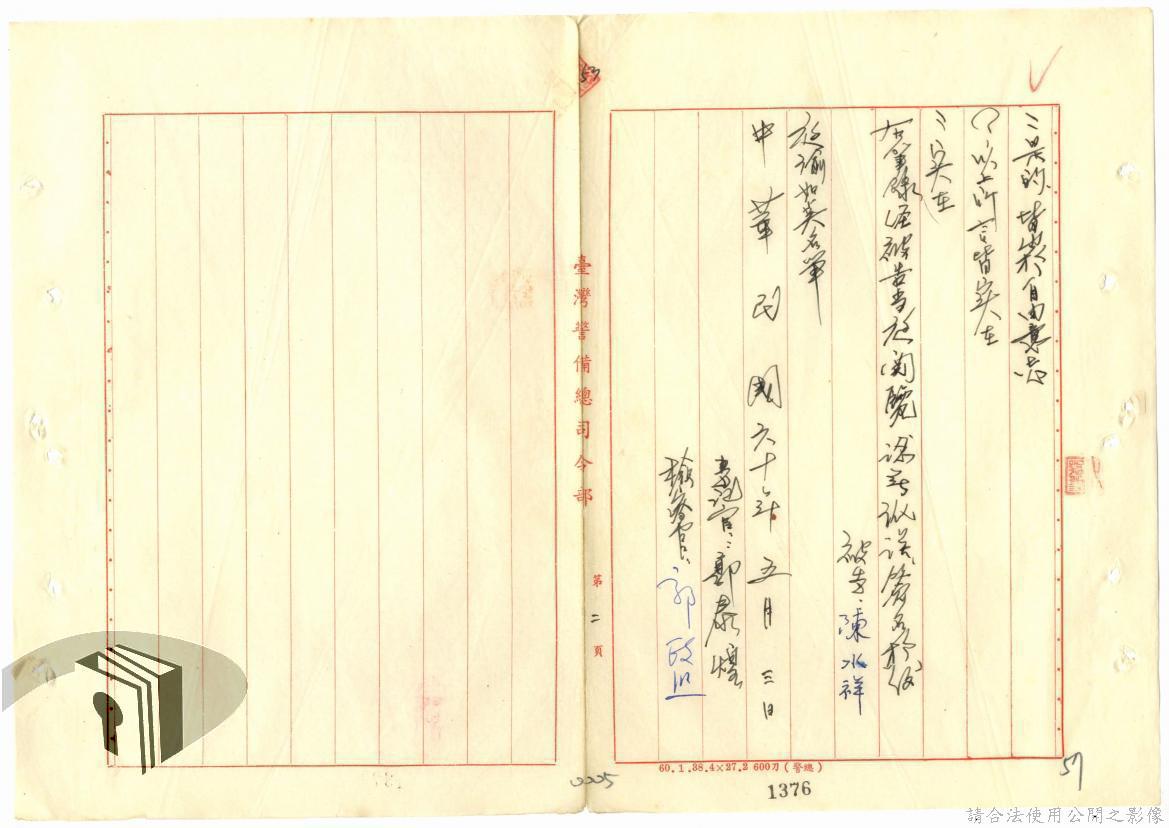 ：是的，皆出於自由意志
問：以上所言皆實在
：實在
右筆錄經被告當庭閱覽認無訛誤簽名於後
被告：陳水祥
庭諭如英名單
中華民國六十年五月三日
書記官：鄭泰煌
檢察官：郭政熙
臺灣警備總司令部
第二頁
60.1.38.4×27.2 600刀（警總）
1376
57
0005
請合法使用公開之影像